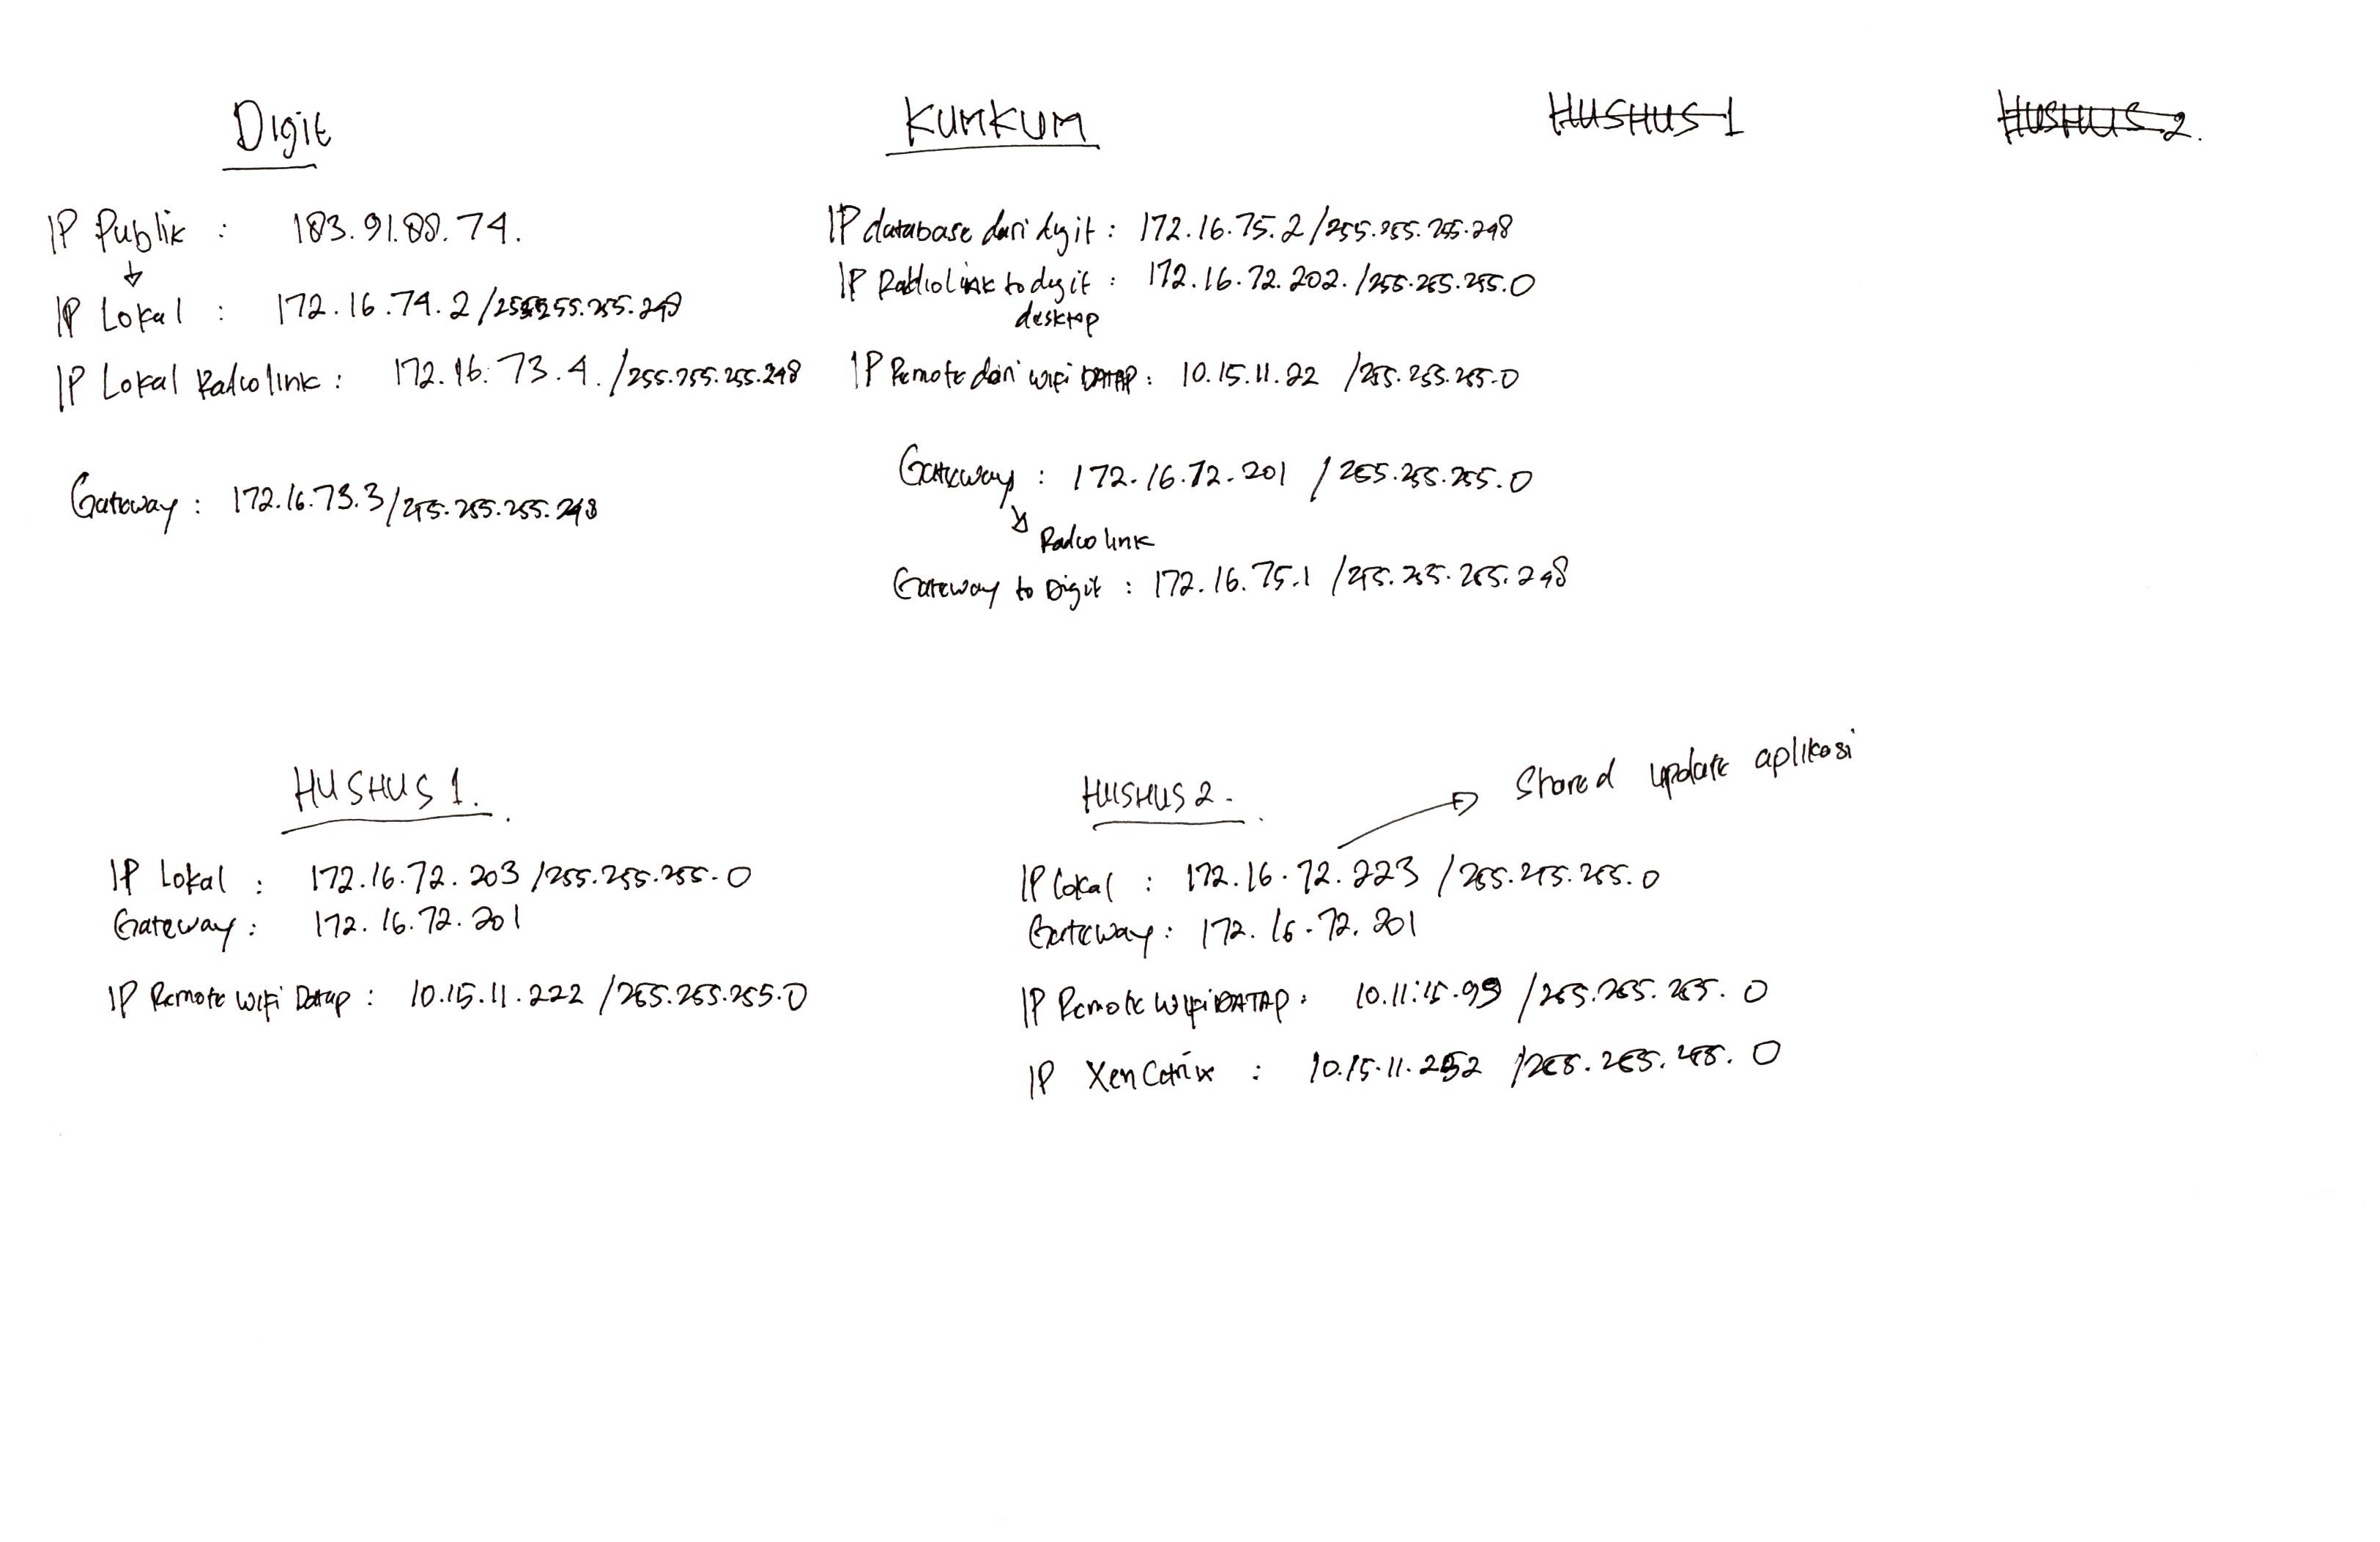 Digit
IP Publik : 183.91.88.74.
IP Lokal : 172.16.74.2/255.255.255.248
IP Lokal Radiolink : 172.16.73.4./255.255.255.248
Gateway : 172.16.73.3/255.255.255.248
KUMKUM
IP database dari digit : 172.16.75.2/255.255.255.248
IP Radiolink to digit : 172.16.72.202./255.255.255.0
desktop
IP Remote dari wifi DATAP : 10.15.11.22 /255.255.255.0
Gateway : 172.16.72.201 /255.255.255.0
Radiolink
Gateway to Digit : 172.16.75.1 /255.255.255.248
HUSHUS 1
HUSHUS 2.
HUSHUS 1.
IP Lokal : 172.16.72.203 /255.255.255.0
Gateway : 172.16.72.201
IP Remote Wifi Datap : 10.15.11.222 /255.255.255.0
HUSHUS 2.
Shared update aplikasi
IP Lokal : 172.16.72.223 /255.255.255.0
Gateway : 172.16.72.201
IP Remote Wifi DATAP : 10.11.15.99 /255.255.255.0
IP Xen Cetrix : 10.15.11.252 /255.255.255.0